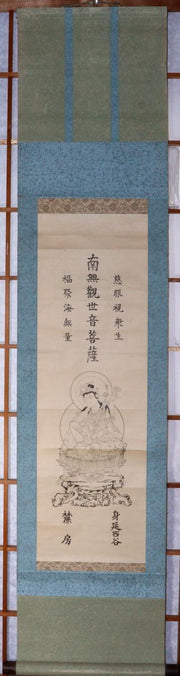 慈眼視衆生
南無觀世音菩薩
福聚海無量
身延西谷
禁房